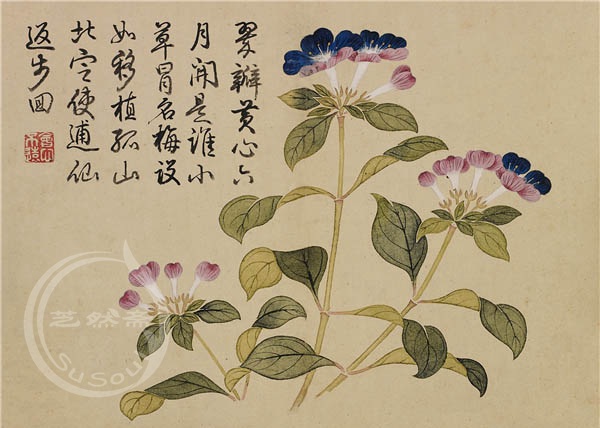 翠瓣黄心六
月開是誰小
草冒名梅設
如移植孤山
北定使逋仙
返步回
艺然斋